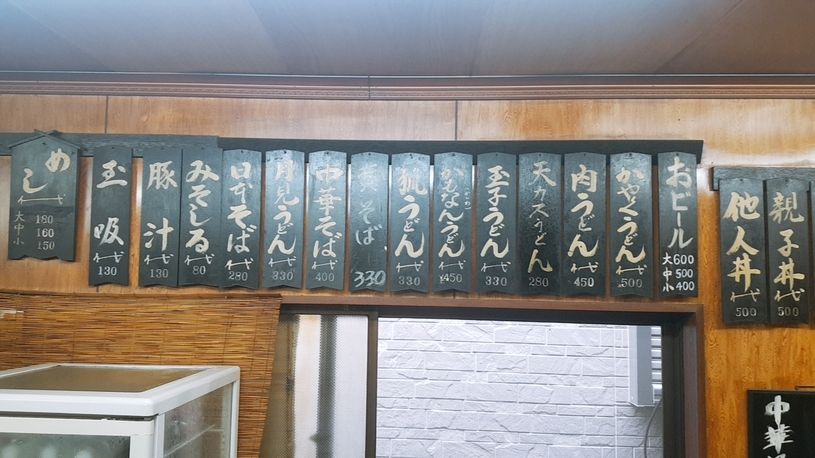 めし代
大 180
中 160
小 150
玉吸
代
130
豚汁
代
130
みそしる
代
80
日本そば
代
280
月見うどん
代
330
中華そば
代
400
黄そば
代
330
狐うどん
代
330
かもなんうどん
代
450
玉子うどん
代
330
天カスうどん
280
肉うどん
代
450
かやくうどん
代
500
おビール
大 600
中 500
小 400
他人丼
代
500
親子丼
代
500
中華